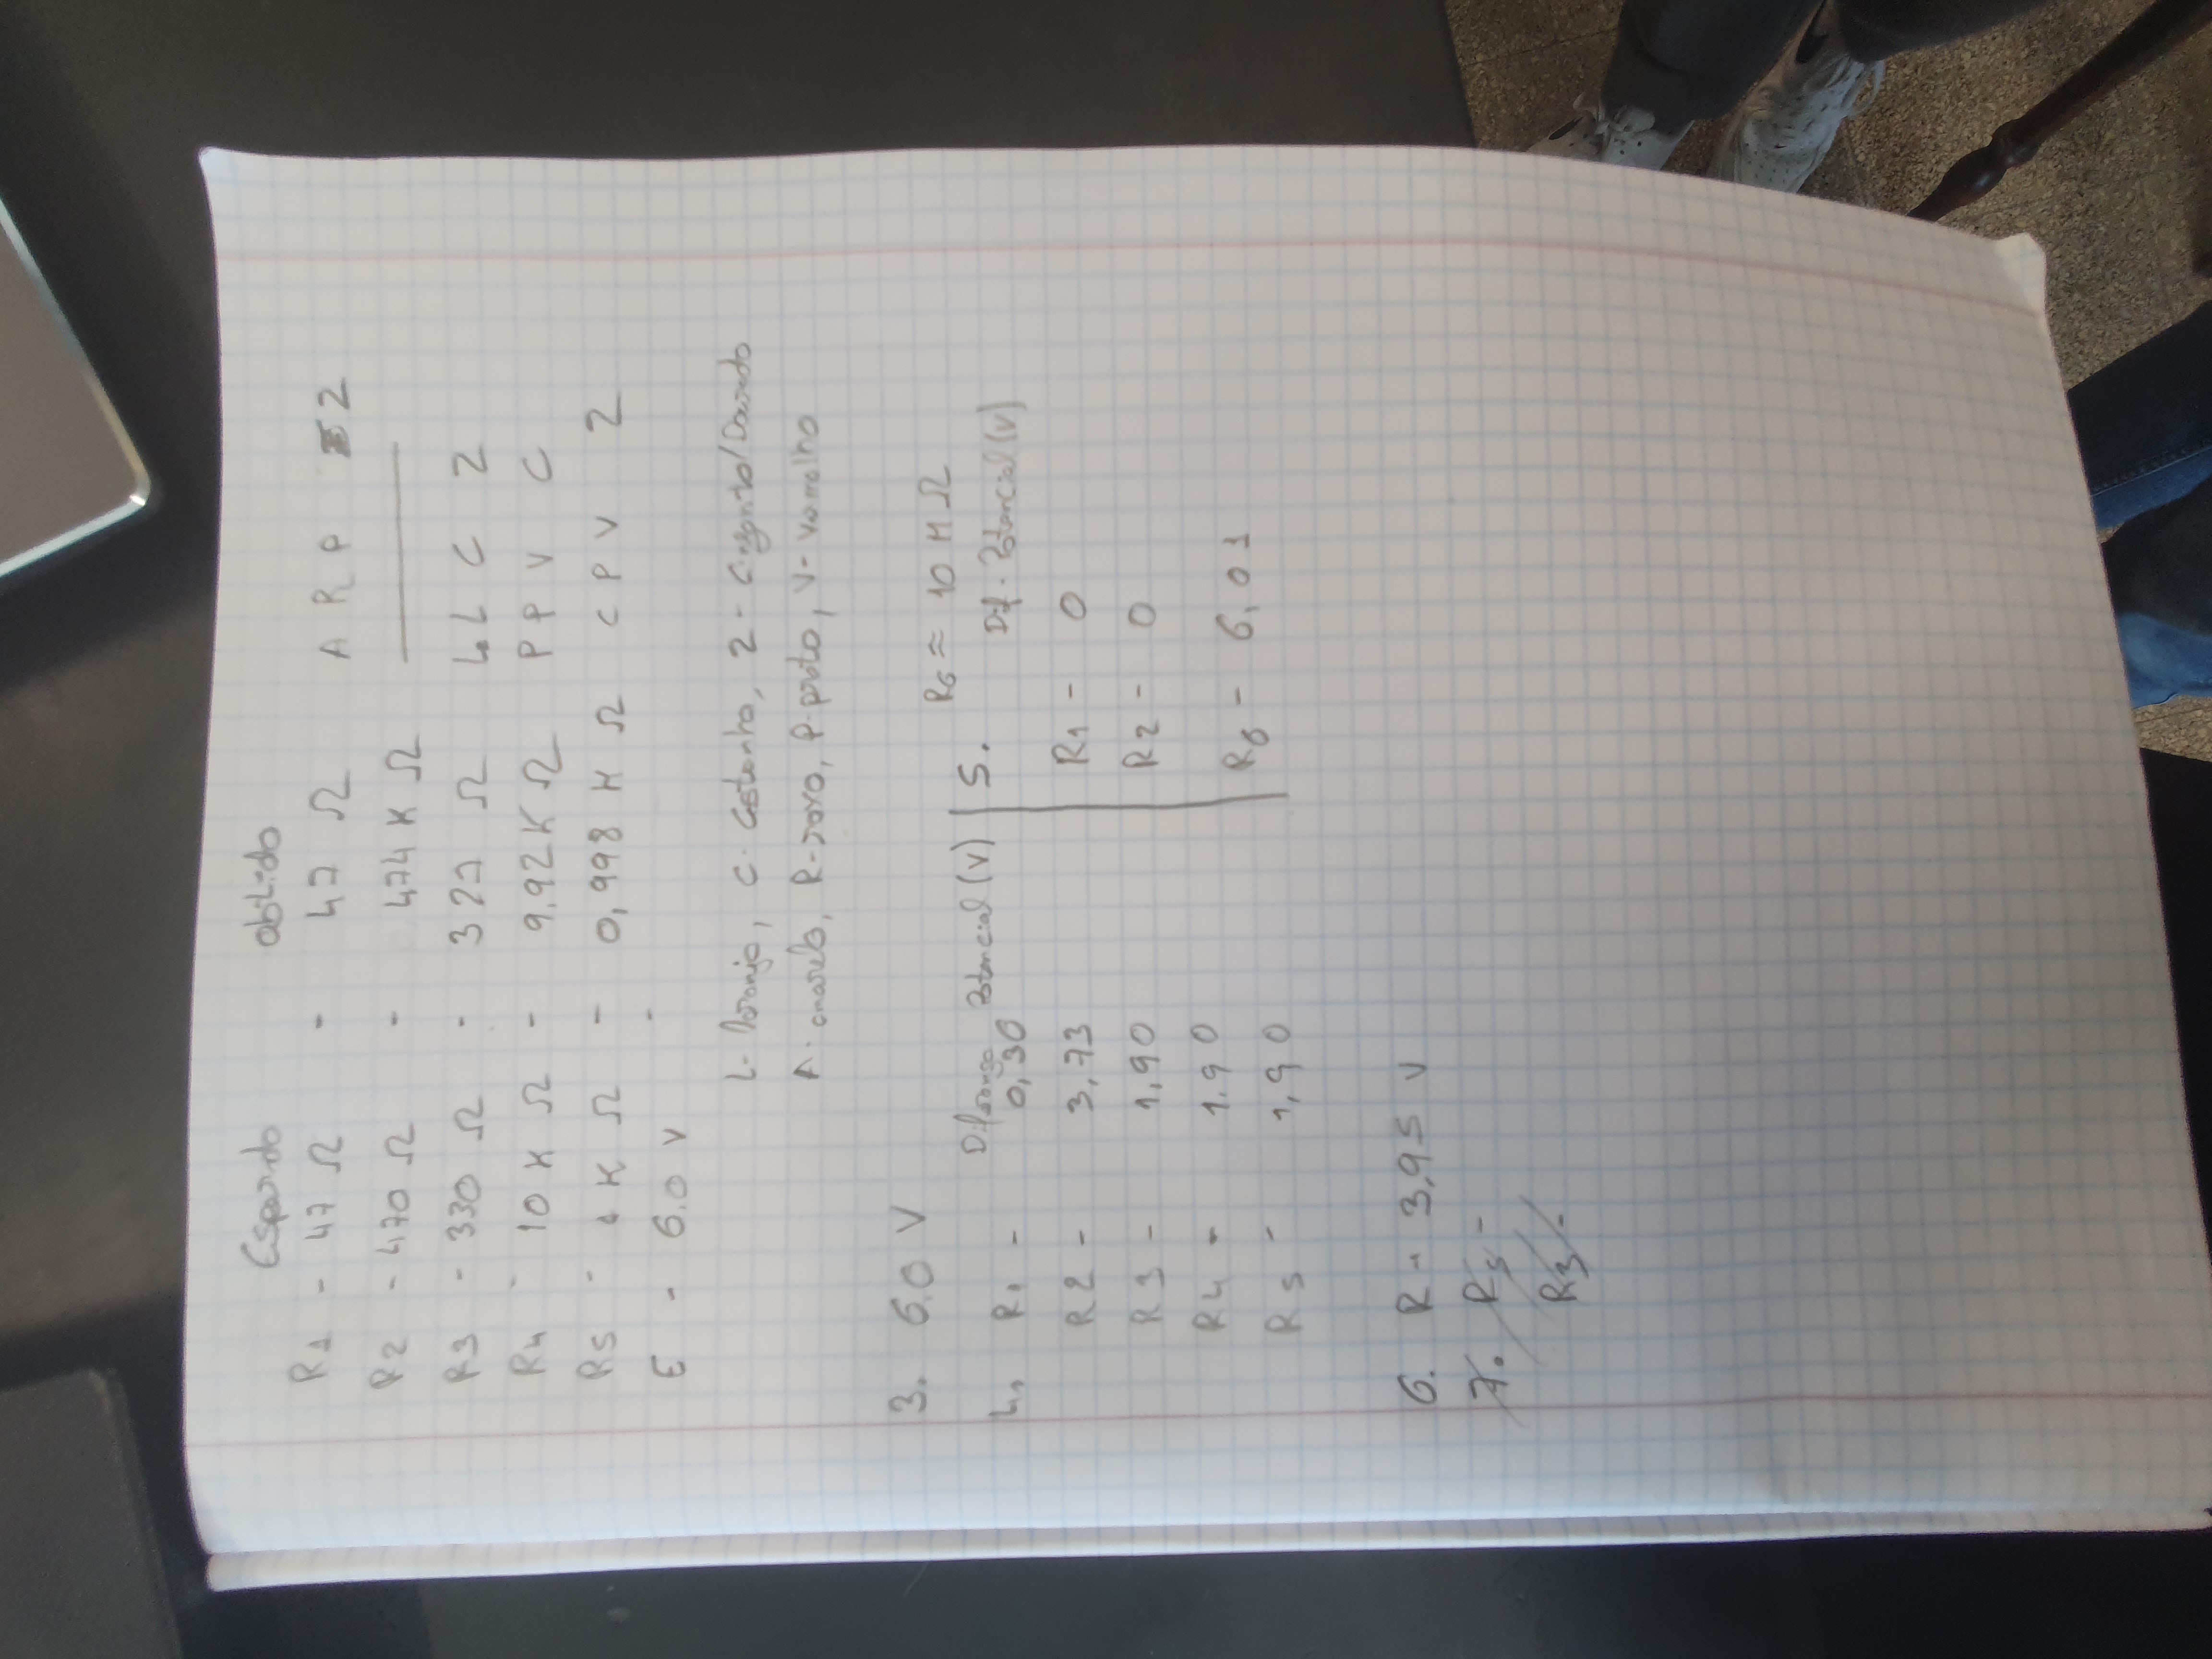 Esperado obtido
R1 - 47 Ω - 47 Ω A R P Z
R2 - 470 Ω - 474 K Ω
R3 - 330 Ω - 327 Ω L L C Z
R4 - 10 K Ω - 9.92 K Ω P P V C
R5 - 1 K Ω - 0,998 K Ω C P V Z
E - 6.0 V -
L- laranja, C- Castanho, Z- Cinzento/Dourado
A- amarelo, R-roxo, P-preto, V- vermelho
3. 6.0 V
4. Diferença Potencial (V)
R1 - 0,30
R2 - 3,73
R3 - 1,90
R4 - 1.90
R5 - 1,90
5. R6 ≈ 10 M Ω
Dif. Potencial (V)
R1 - 0
R2 - 0
R6 - 6,01
6. R - 3,95 V
7. R5 -
R3 -